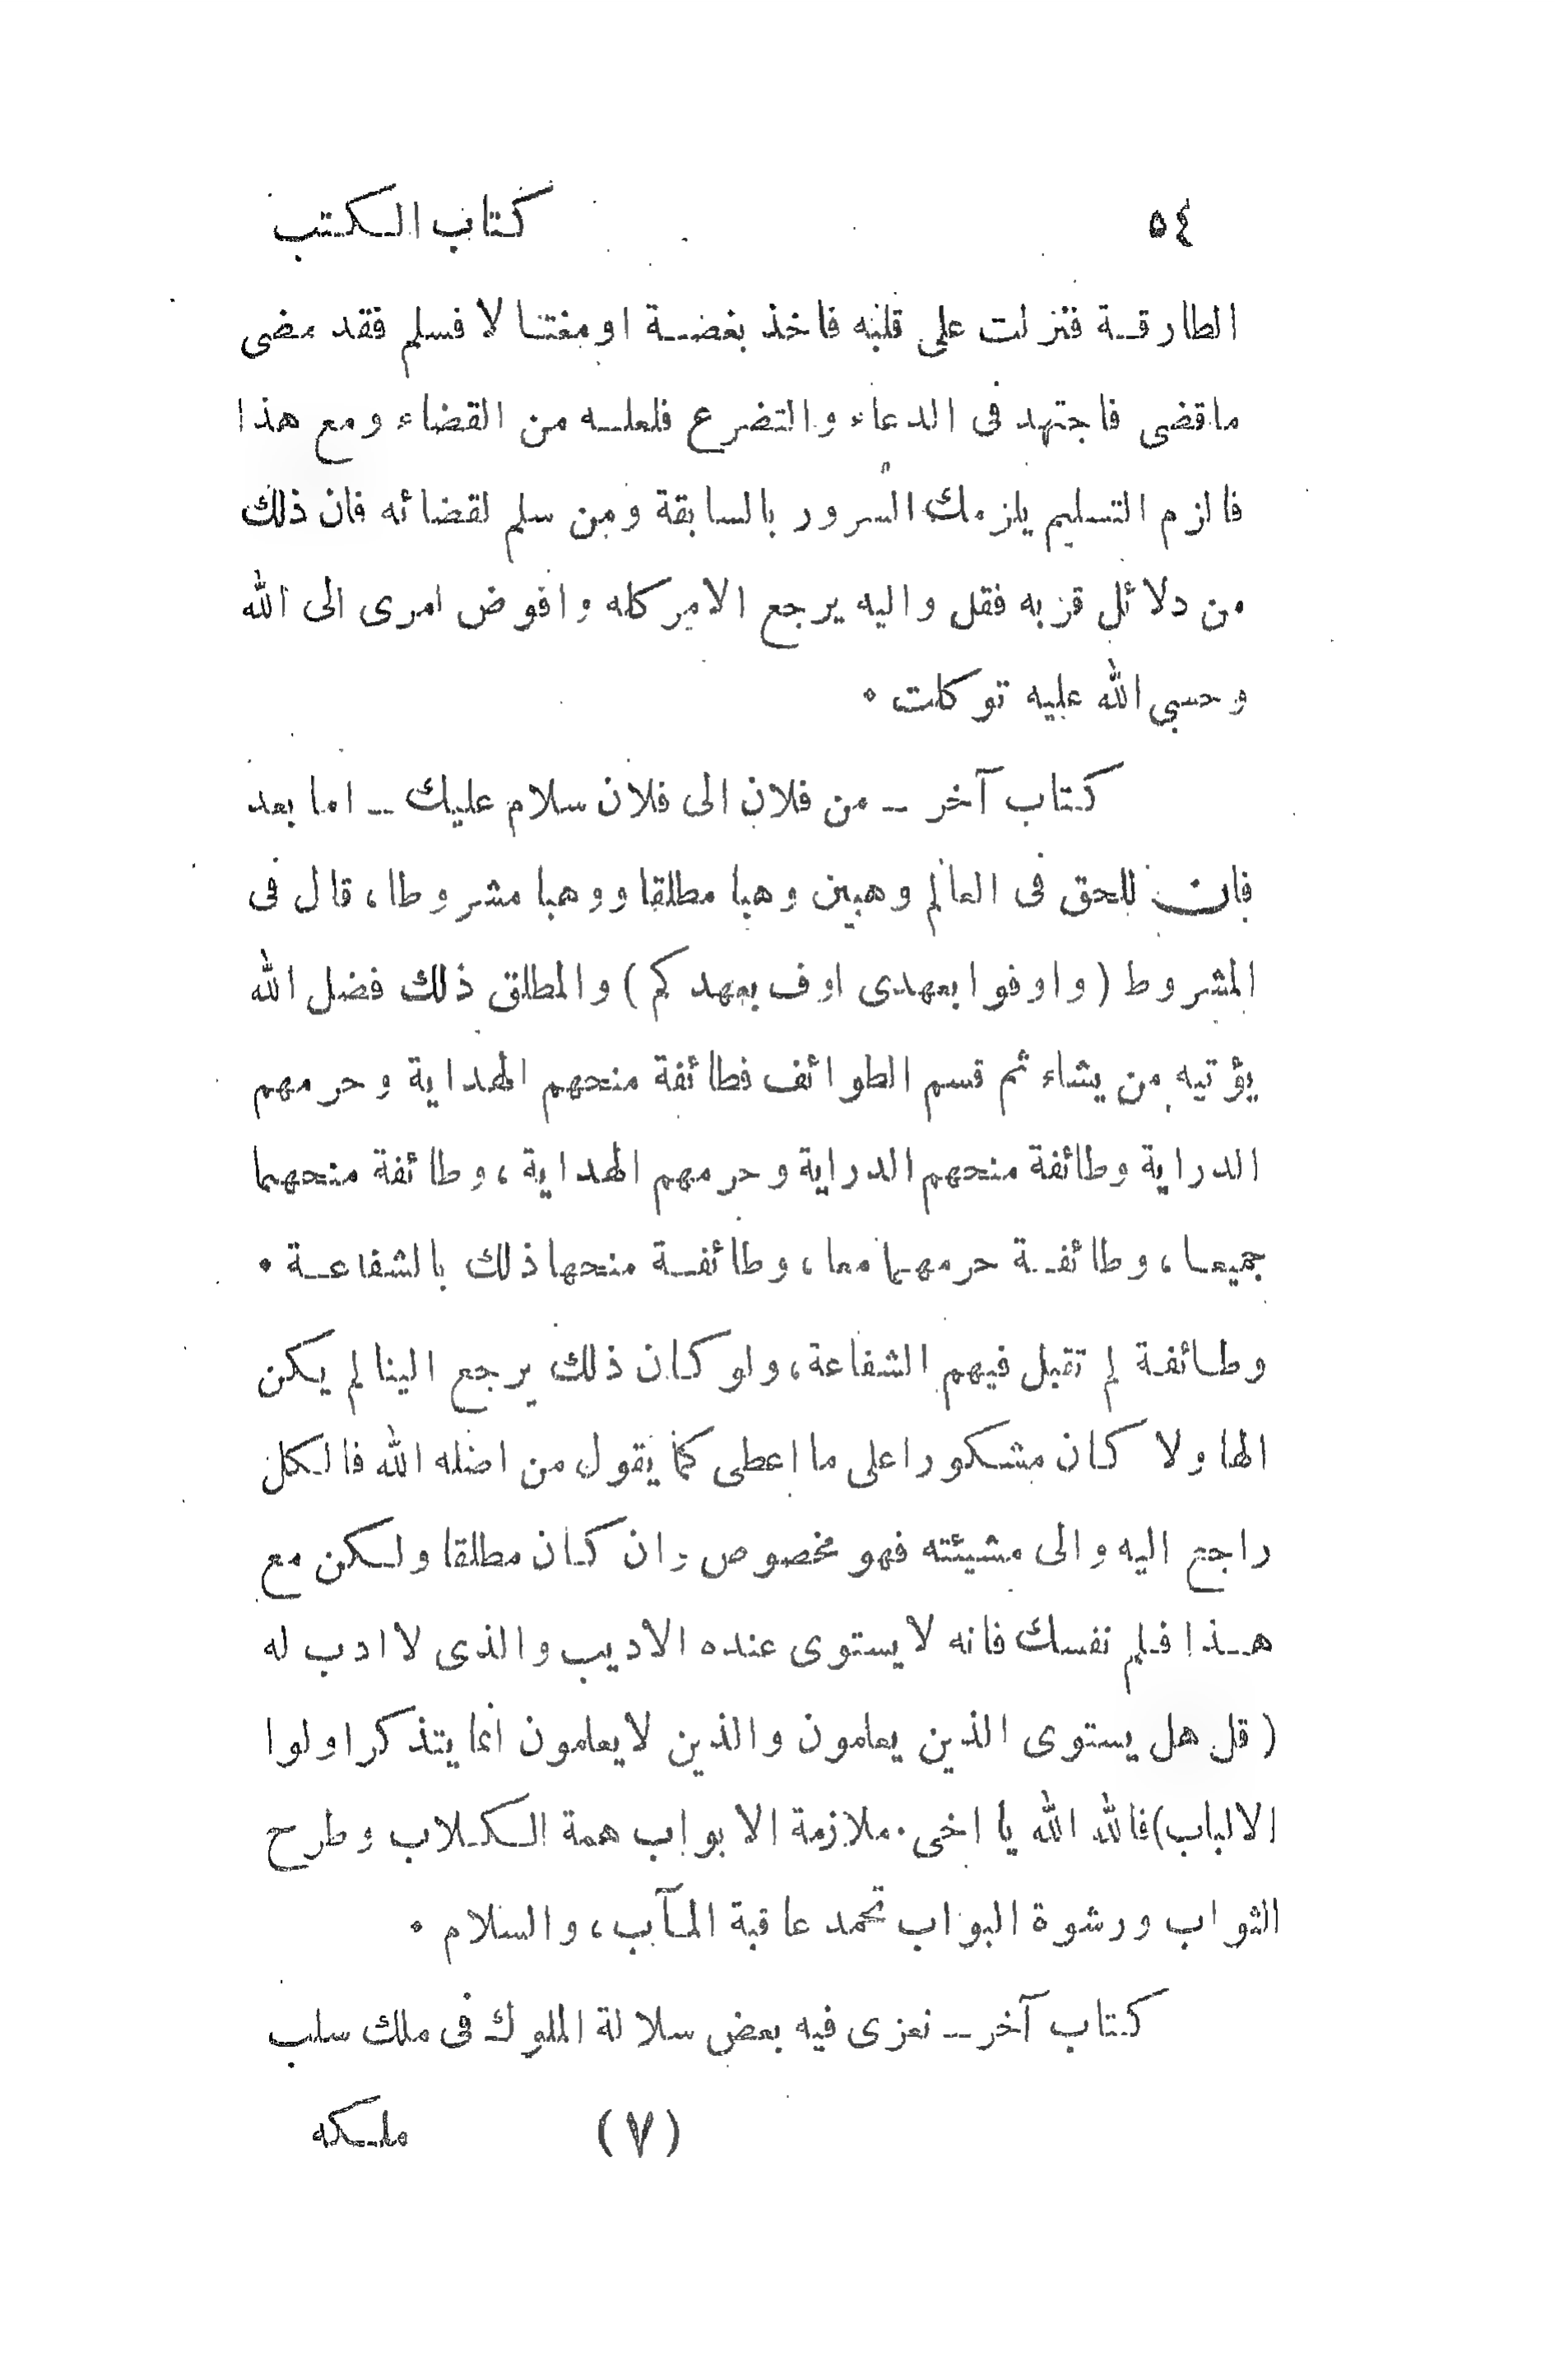 ٥٤ كتاب الكتب
الطارقة فنزلت على قلبه فاخذ بغضة او مغتالا فسلم فقد مضى
ماقضى فاجتهد فى الدعاء والتضرع فلعله من القضاء ومع هذا
فالزم التسليم يلزمك السرور بالسابقة ومن سلم لقضائه فان ذلك
من دلائل قربه فقل واليه يرجع الامر كله وافوض امرى الى الله
وحسبي الله عليه توكلت .
كتاب آخر – من فلان الى فلان سلام عليك – اما بعد
فان للحق فى العالم وهبين وهبا مطلقا ووهبا مشروطا، قال فى
المشروط (واوفوا بعهدى اوف بعهدكم) والمطلق ذلك فضل الله
يؤتيه من يشاء ثم قسم الطوائف فطائفة منحهم الهداية وحرمهم
الدراية وطائفة منحهم الدراية وحرمهم الهداية، وطائفة منحهما
جميعا، وطائفة حرمهما معا، وطائفة منحها ذلك بالشفاعة .
وطائفة لم تقبل فيهم الشفاعة، ولو كان ذلك يرجع الينا لم يكن
الها ولا كان مشكورا على ما اعطى كما يقول من اضله الله فالكل
راجع اليه والى مشيئته فهو مخصوص وان كان مطلقا ولكن مع
هذا فلم نفسك فانه لا يستوى عنده الاديب والذى لا ادب له
(قل هل يستوى الذين يعلمون والذين لايعلمون انما يتذكر اولوا
الالباب) فالله الله يا اخى. ملازمة الابواب همة الكلاب وطرح
الثواب ورشوة البواب تحمد عاقبة المآب، والسلام .
كتاب آخر – نعزى فيه بعض سلالة الملوك فى ملك سلب
(٧) ملكه